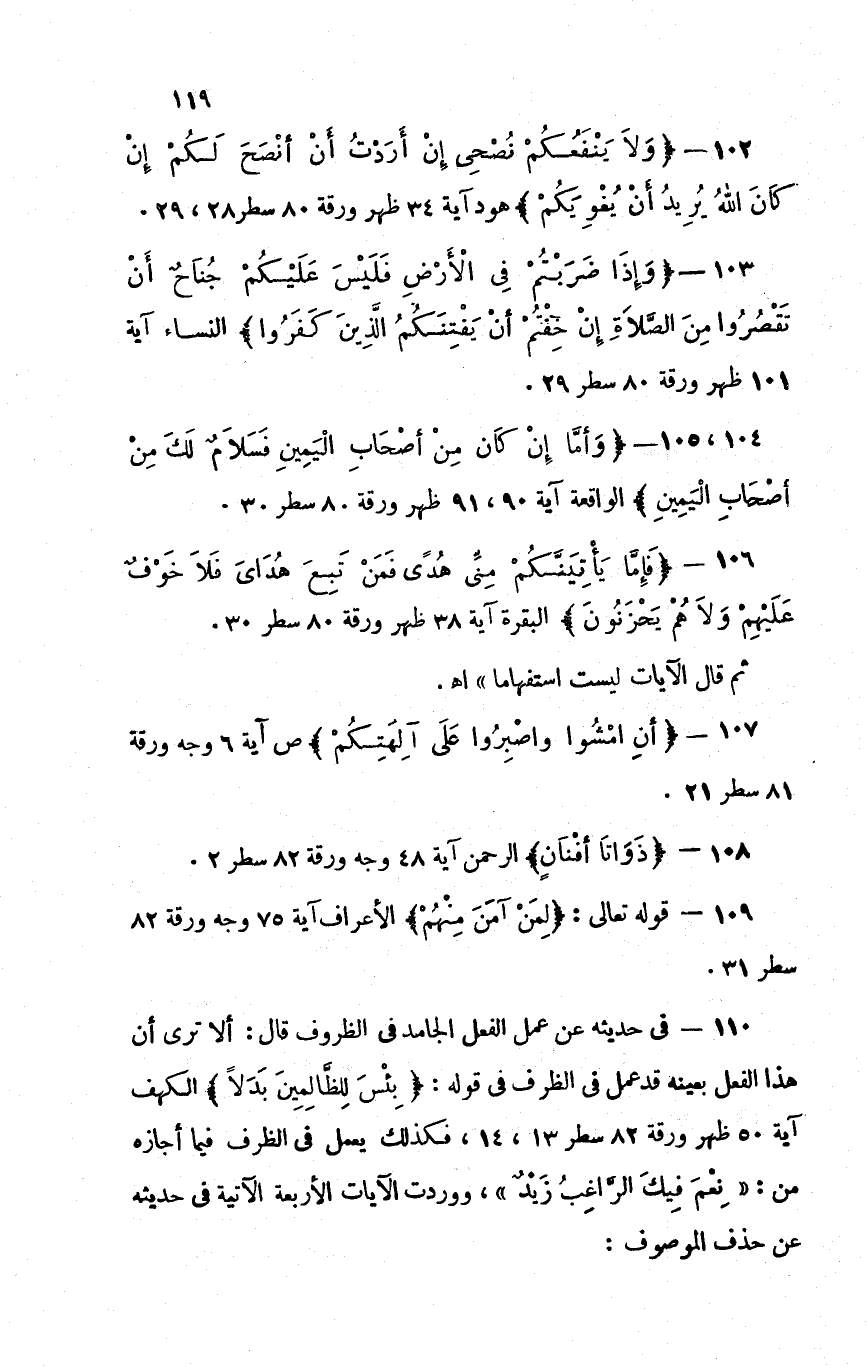 ١١٩
١٠٢ — ﴿ وَلاَ يَنْفَعُكُمْ نُصْحِى إِنْ أَرَدْتُ أَنْ أنْصَحَ لَكُمْ إِنْ
كَانَ اللهُ يُرِيدُ أَنْ يُغْوِيَكُمْ ﴾ هود آية ٣٤ ظهر ورقة ٨٠ سطر ٢٨ ، ٢٩ .
١٠٣ — ﴿ وَإِذَا ضَرَبْتُمْ فِى الْأَرْضِ فَلَيْسَ عَلَيْكُمْ جُنَاحٌ أَنْ
تَقْصُرُوا مِنَ الصَّلاَةِ إِنْ خِفْتُمْ أنْ يَفْتِنَكُمُ الَّذِينَ كَفَرُوا ﴾ النساء آية
١٠١ ظهر ورقة ٨٠ سطر ٢٩ .
١٠٤ ، ١٠٥ — ﴿ وَأمَّا إِنْ كَان مِنْ أصْحَابِ الْيَمِينِ فَسَلاَمٌ لَكَ مِنْ
أصْحَابِ الْيَمِينِ ﴾ الواقعة آية ٩٠ ، ٩١ ظهر ورقة ٨٠ سطر ٣٠ .
١٠٦ — ﴿ فَإِمَّا يَأْتِيَنَّكُمْ مِنِّى هُدًى فَمَنْ تَبِعَ هُدَاىَ فَلاَ خَوْفٌ
عَلَيْهِمْ وَلاَ هُمْ يَحْزَنُونَ ﴾ البقرة آية ٣٨ ظهر ورقة ٨٠ سطر ٣٠ .
ثم قال الآيات ليست استفهاما » اه .
١٠٧ — ﴿ أنِ امْشُوا واصْبِرُوا عَلَى آلِهَتِكُمْ ﴾ ص آية ٦ وجه ورقة
٨١ سطر ٢١ .
١٠٨ — ﴿ ذَوَاتَا أفْنَانٍ ﴾ الرحمن آية ٤٨ وجه ورقة ٨٢ سطر ٢ .
١٠٩ — قوله تعالى : ﴿ لِمَنْ آمَنَ مِنْهُمْ ﴾ الأعراف آية ٧٥ وجه ورقة ٨٢
سطر ٣١ .
١١٠ — فى حديثه عن عمل الفعل الجامد فى الظروف قال : ألا ترى أن
هذا الفعل بعينه قد عمل فى الظرف فى قوله : ﴿ بِئْسَ لِلظَّالِمِينَ بَدَلاً ﴾ الكهف
آية ٥٠ ظهر ورقة ٨٢ سطر ١٣ ، ١٤ ، فكذلك يعمل فى الظرف فيما أجازه
من : « نِعْمَ فِيكَ الرَّاغِبُ زَيْدٌ » ، ووردت الآيات الأربعة الآتية فى حديثه
عن حذف الموصوف :